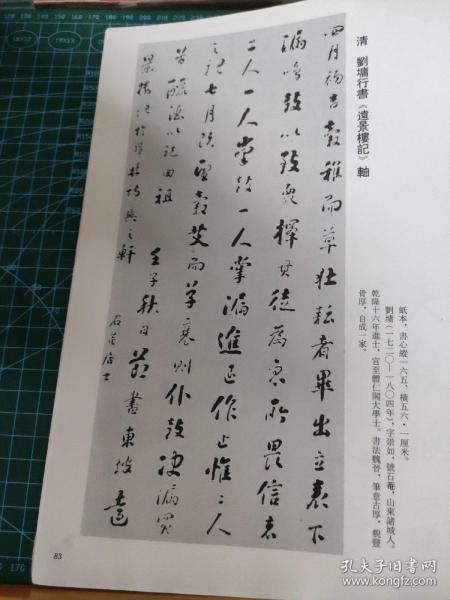 清 劉墉行書《遠景樓記》軸
紙本，書心縱一六五、橫五六·一厘米。
劉墉（一七二〇—一八〇四年），字崇如，號石菴，山東諸城人。
乾隆十六年進士，官至體仁閣大學士。書法魏晉，筆意古厚，貌豐
骨厚，自成一家。
四月初吉穀稚而草壯耘者畢出立表下
漏鳴鼓以致衆擇其徒為衆所畏信者
二人一人掌鼓一人掌漏進退作止惟二人
之聽七月既望穀艾而草衰則仆鼓決漏買
羊以祀田祖 壬子秋日節書東坡遠
景樓記於之軒
石菴居士
83
孔夫子旧书网